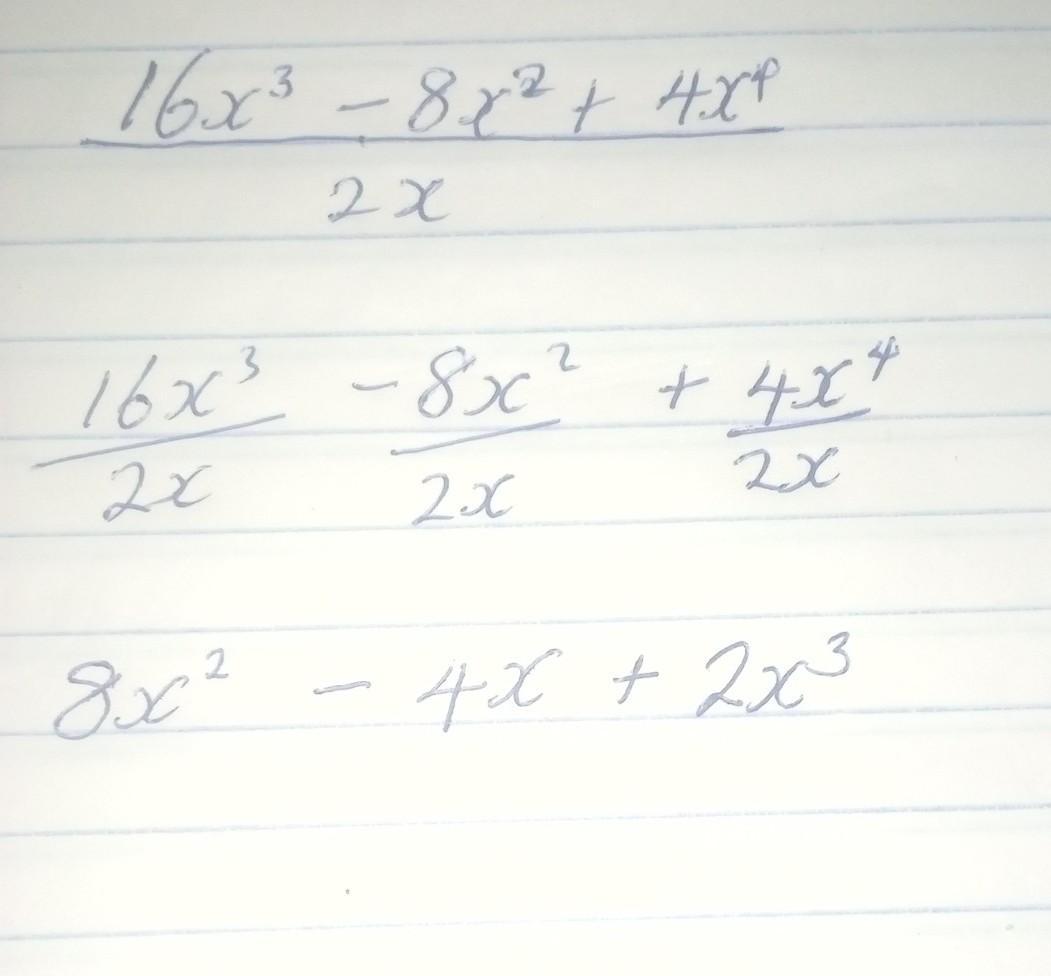 16x³ - 8x² + 4x⁴
2x
16x³ - 8x² + 4x⁴
2x 2x 2x
8x² - 4x + 2x³